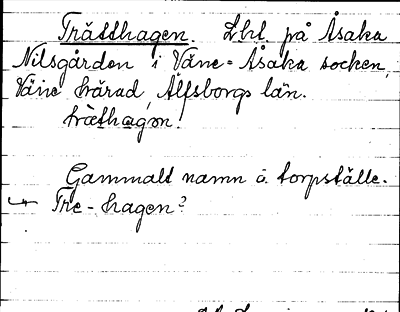 Trätthagen. Lht. på Åsaka
Nilsgården i Väne-Åsaka socken,
Väne härad, Älfsborgs län.
træthagon.
Gammalt namn å torpställe.
Tre-hagen?